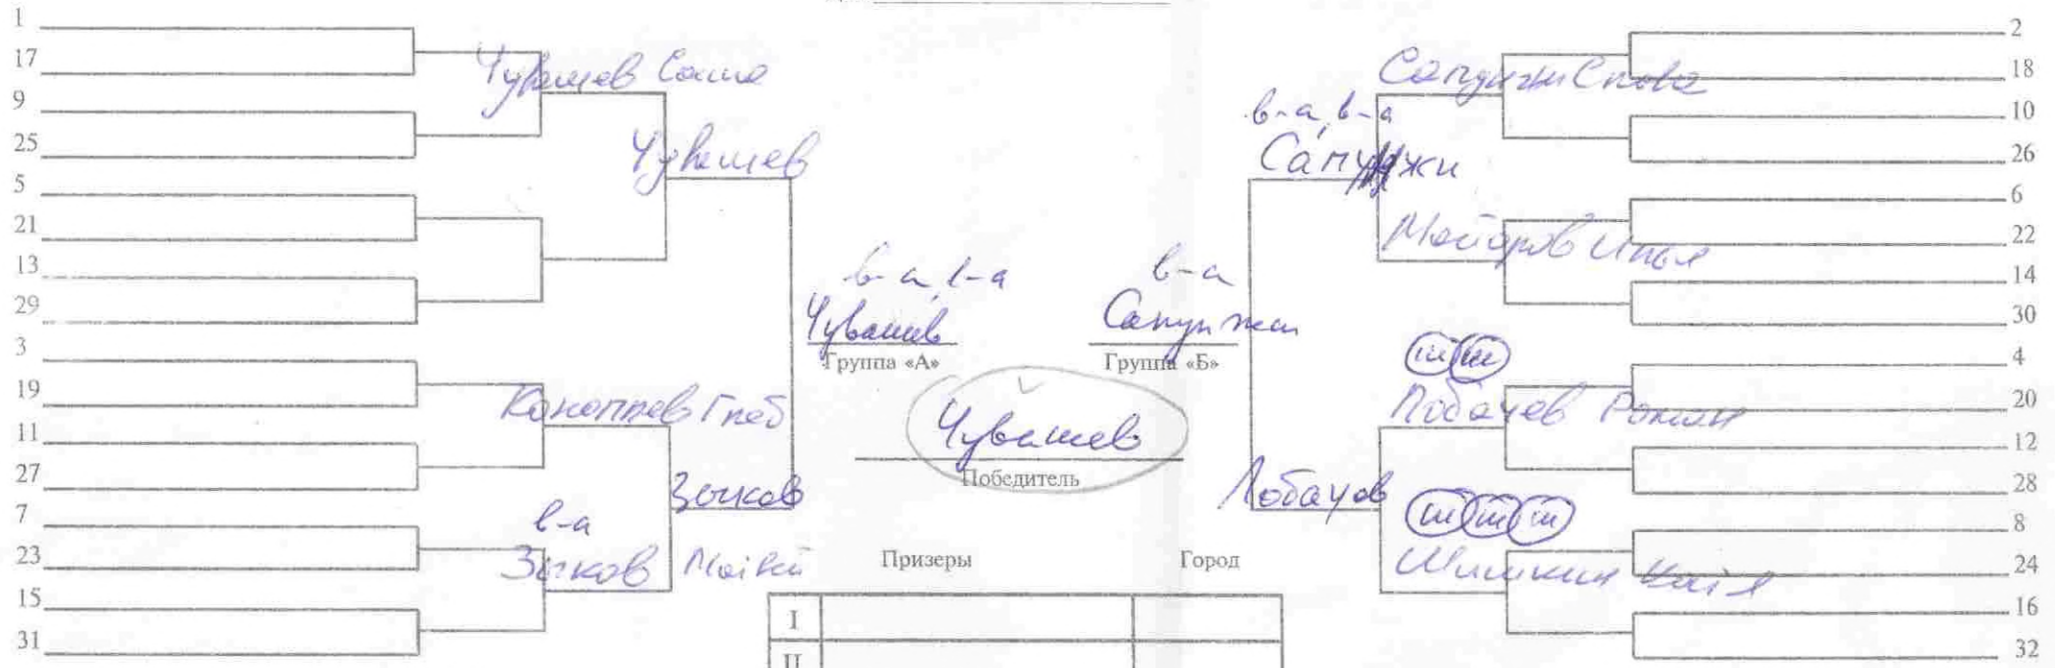 1
17
9
25
5
21
13
29
3
19
11
27
7
23
15
31
Чувашев Саша
Чувашев
Коноплев Глеб
в-а
Зыков Матвей
Зыков
в-а, в-а
Чувашев
Группа «А»
в-а
Сапунжи
Группа «Б»
Чувашев
Победитель
Призеры Город
I
II
в-а, в-а
Сапунжи
Лобачов
Сапунжи Слава
Майоров Илья
ш ш
Лобачев Роман
ш ш ш
Шишкин
2
18
10
26
6
22
14
30
4
20
12
28
8
24
16
32